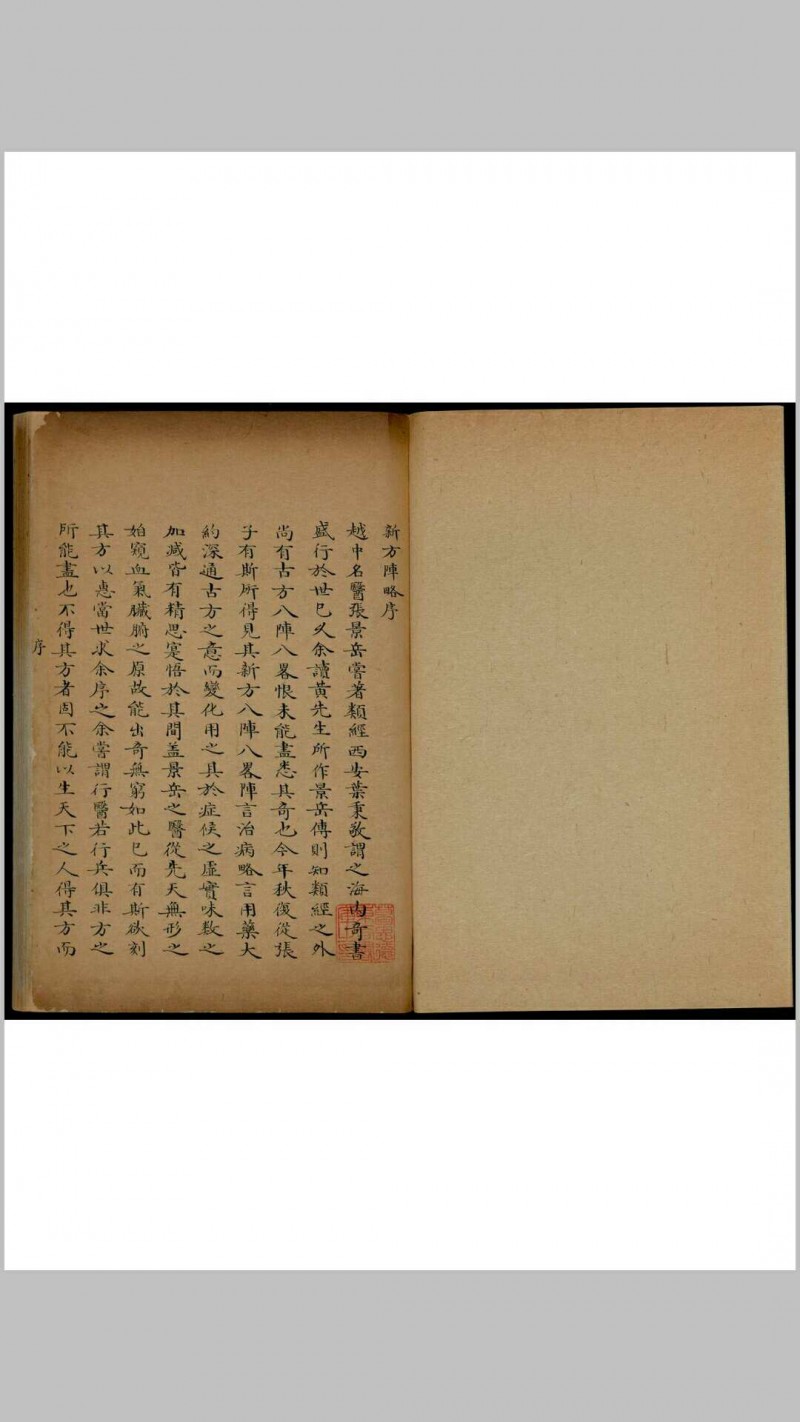 新方陣略序
越中名醫張景岳嘗著類經西安葉秉敬謂之海內奇書
盛行於世已久余讀黃先生所作景岳傳則知類經之外
尚有古方八陣八畧恨未能盡悉其奇也今年秋復從張
子有斯所得見其新方八陣八畧陣言治病略言用藥大
約深通古方之意而變化用之其於症候之虛實味数之
加减皆有精思寔悟於其間盖景岳之醫從先天無形之
始窺血氣臟腑之原故能出奇無窮如此已而有斯欲刻
其方以惠當世求余序之余嘗謂行醫若行兵俱非方之
所能盡也不得其方者固不能以生天下之人得其方而
序